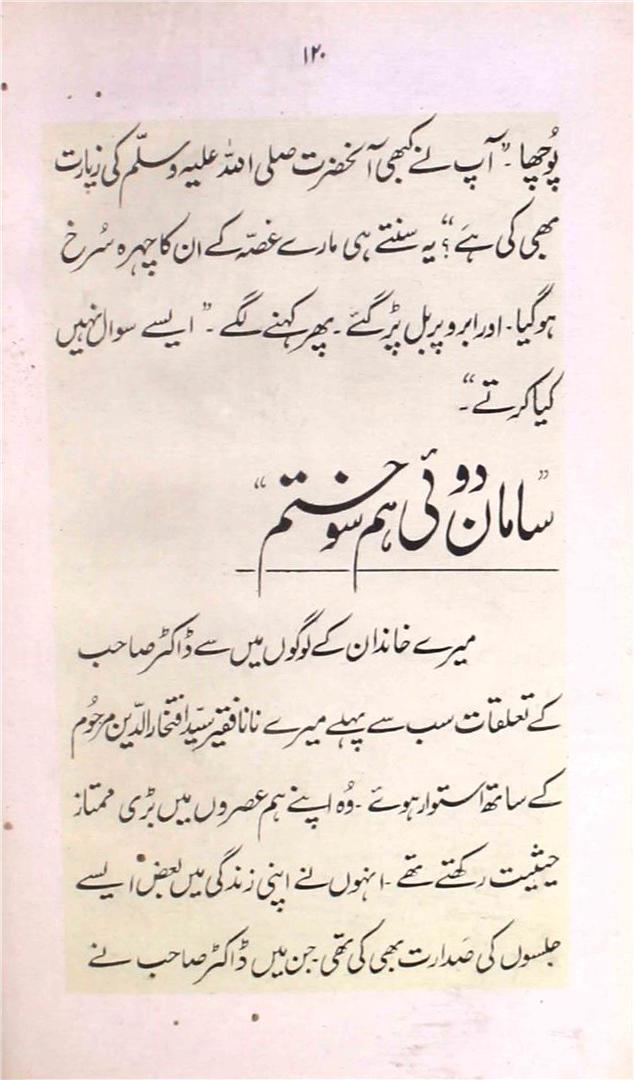 ۱۲۰
پُوچھا۔ ”آپ نے کبھی آنحضرت صلی اللہ علیہ وسلّم کی زیارت
بھی کی ہَے“؟ یہ سنتے ہی مارے غصّہ کے ان کا چہرہ سُرخ
ہوگیا۔ اور ابرو پر بل پڑ گئے۔ پھر کہنے لگے۔ ”ایسے سوال نہیں
کیا کرتے“۔
”سامان دوئی ہم سوختم“
میرے خاندان کے لوگوں میں سے ڈاکٹر صاحب
کے تعلقات سب سے پہلے میرے نانا فقیر سیّد افتخار الدّین مرحُوم
کے ساتھ استوار ہوئے۔ وُہ اپنے ہم عصروں میں بڑی ممتاز
حیثیت رکھتے تھے۔ انہوں نے اپنی زندگی میں بعض ایسے
جلسوں کی صَدارت بھی کی تھی۔ جن میں ڈاکٹر صاحب نے